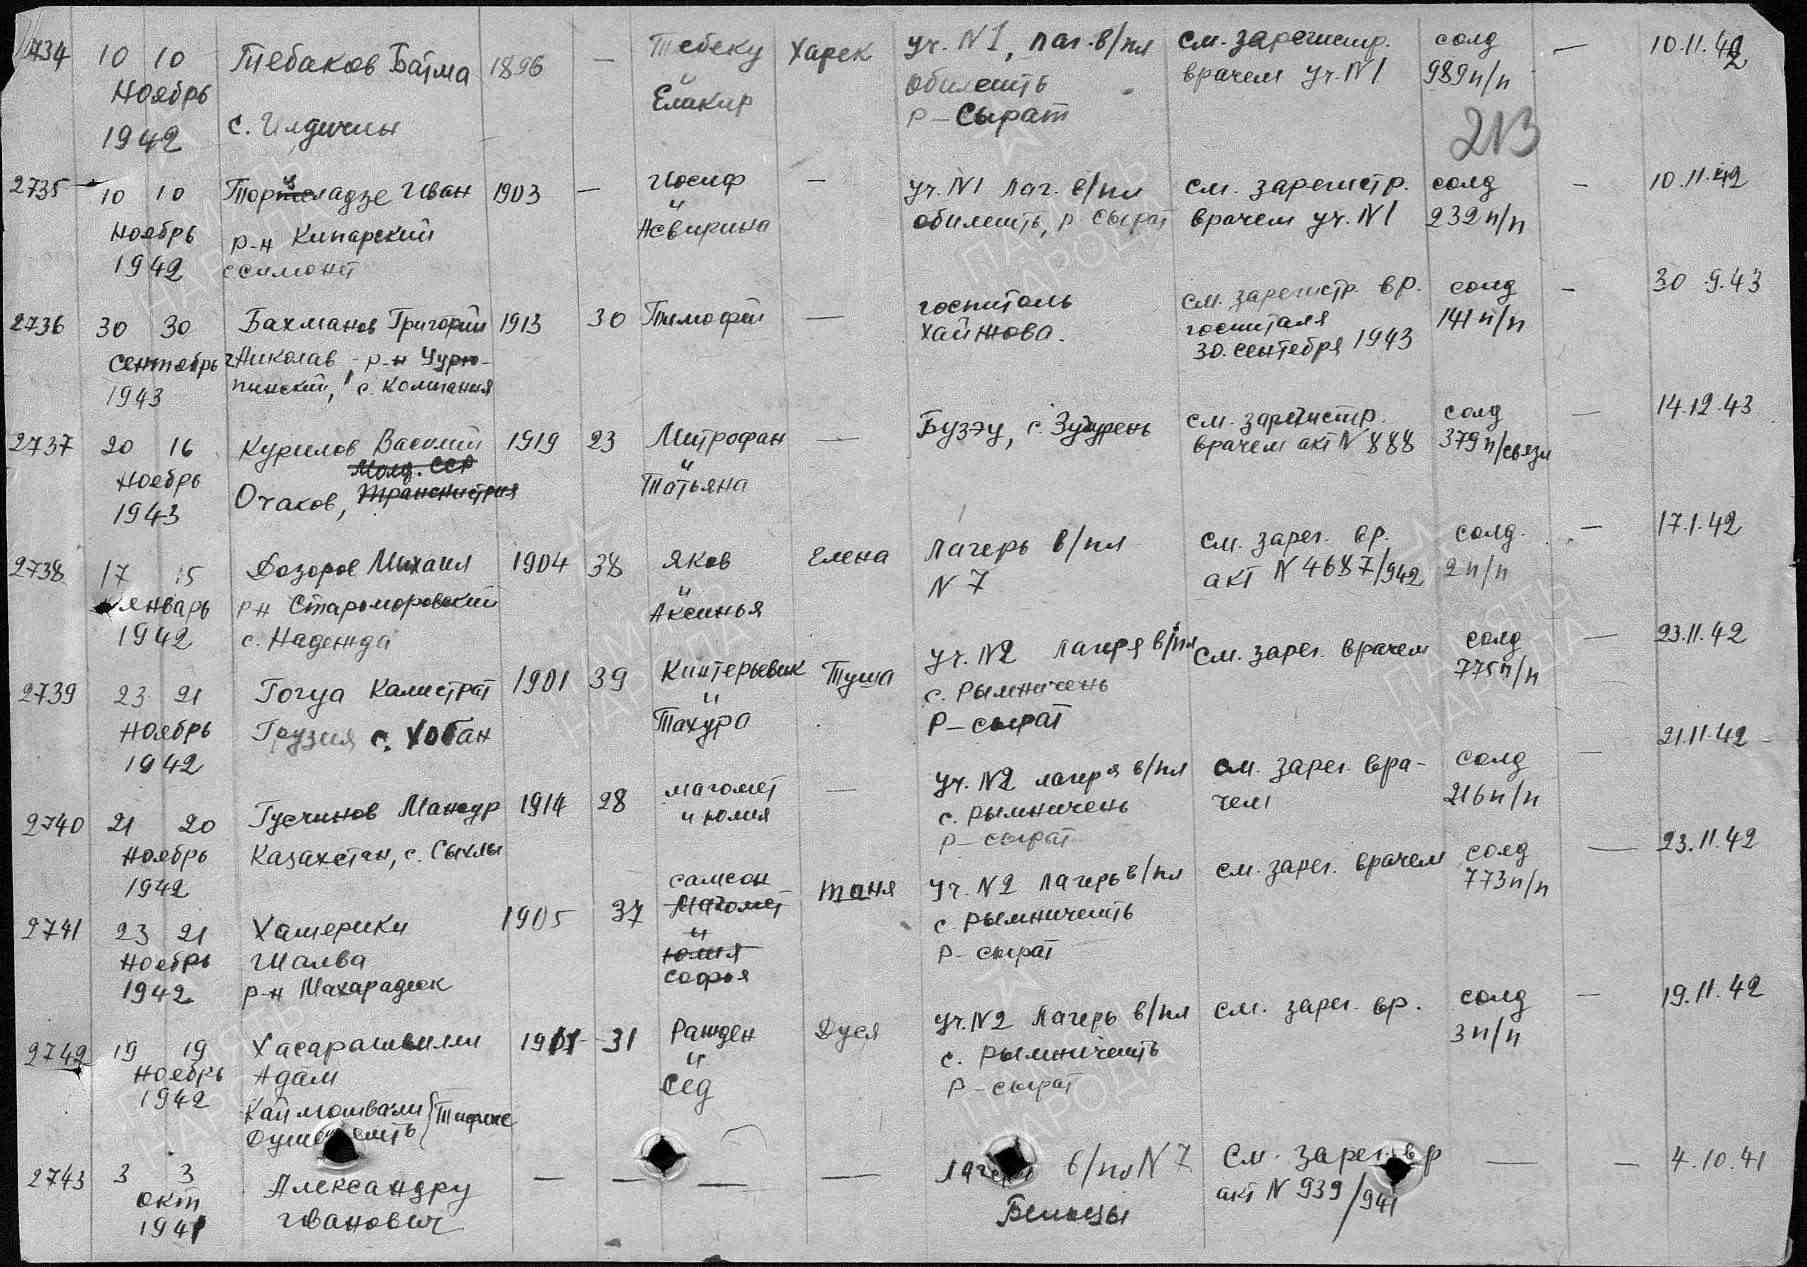 2734 10 10 Тебаков Батма 1896 — Тебеку Харек уч. N1, лаг. в/пл см. зарегистр. солд — 10.11.42
Ноябрь и обилешть врачем уч. N1 989 п/п
1942 с. Илдичин Елакир Р-Сырат
213
2735 10 10 Иван 1903 — Иосиф — уч. N1 лаг. в/пл см. зарегистр. солд — 10.11.42
Ноябрь р-н Кипарский и обилешть, р. сырат врачем уч. N1 232 п/п
1942 ссимонет Асвирина
2736 30 30 Бахманов Григорий 1913 30 Тимофей — госпиталь см. зарегистр. вр. солд — 30.9.43
Сентябрь Николав - р-н Чурю- Хайжова. госпиталя 141 п/п
1943 пинский, с. Компания 30. сентебря 1943
2737 20 16 Курилов Василий 1919 23 Митрофан — Бузэу, с. см. зарегистр. солд — 14.12.43
Ноебрь Молд. ССР и врачем акт N 888 379 п/связи
1943 Очаков, Транснистрия Татьяна
2738 17 15 Дозоров Михаил 1904 38 Яков Елена Лагерь в/пл см. зарег. вр. солд. — 17.1.42
Январь р-н Староморовский и N 7 акт N 4687/942 2 п/п
1942 с. Надежда Аксинья
2739 23 21 Гогуа Калистрат 1901 39 Туша уч. N2 лагеря в/пл см. зарег. врачем солд — 23.11.42
Ноябрь Грузия с. Хобан и с. Рымничень 775 п/п
1942 Тахура Р-сырат
2740 21 20 Гусчинов Мансур 1914 28 Магомет — уч. N2 лагеря в/пл см. зарег. вра- солд — 21.11.42
Ноябрь Казахстан, с. Сыклы и Юлия с. Рымничень чем 216 п/п
1942 Р-сырат
2741 23 21 Хашерики 1905 37 Самсон Таня уч. N2 лагерь в/пл см. зарег. врачем солд — 23.11.42
Ноебрь Шалва Магомет с Рымничешть 773 п/п
1942 р-н Махарадзек и Р-сырат
Юлия
Софья
2742 19 19 Хасарашвили 1911 31 Ражден Дуся уч. N2 Лагерь в/пл см. зарег. вр. солд — 19.11.42
Ноябрь Адам и с. Рымничешть 3 п/п
1942 Каймошвали Сед Р-сырат
2743 3 3 Александру — — — — Лагерь в/пл N 7 См. зарег. вр — — 4.10.41
окт Иванович акт N 939/941
1941